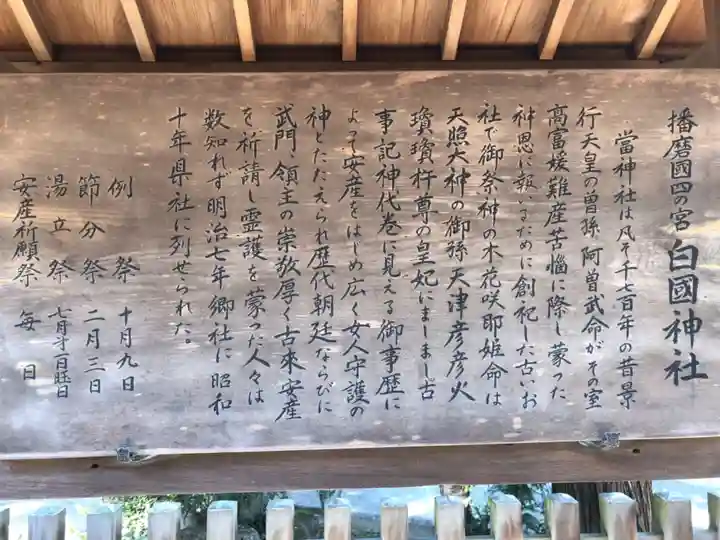 播磨國四の宮 白國神社
當神社は凡そ千七百年の昔景
行天皇の曽孫 阿曽武命がその室
高富媛難産苦惱に際し蒙った
神恩に報いるために創祀した古いお
社で御祭神の木花咲耶姫命は
天照大神の御孫 天津彦彦火
瓊瓊杵尊の皇妃にましまし古
事記神代巻に見える御事歴に
よって安産をはじめ広く女人守護の
神とたたえられ歴代朝廷ならびに
武門・領主の崇敬厚く古來安産
を祈請し霊護を蒙った人々は
数知れず明治七年郷社に昭和
十年県社に列せられた。
例祭 十月九日
節分祭 二月三日
湯立祭 七月第二日旺日
安産祈願祭 毎日